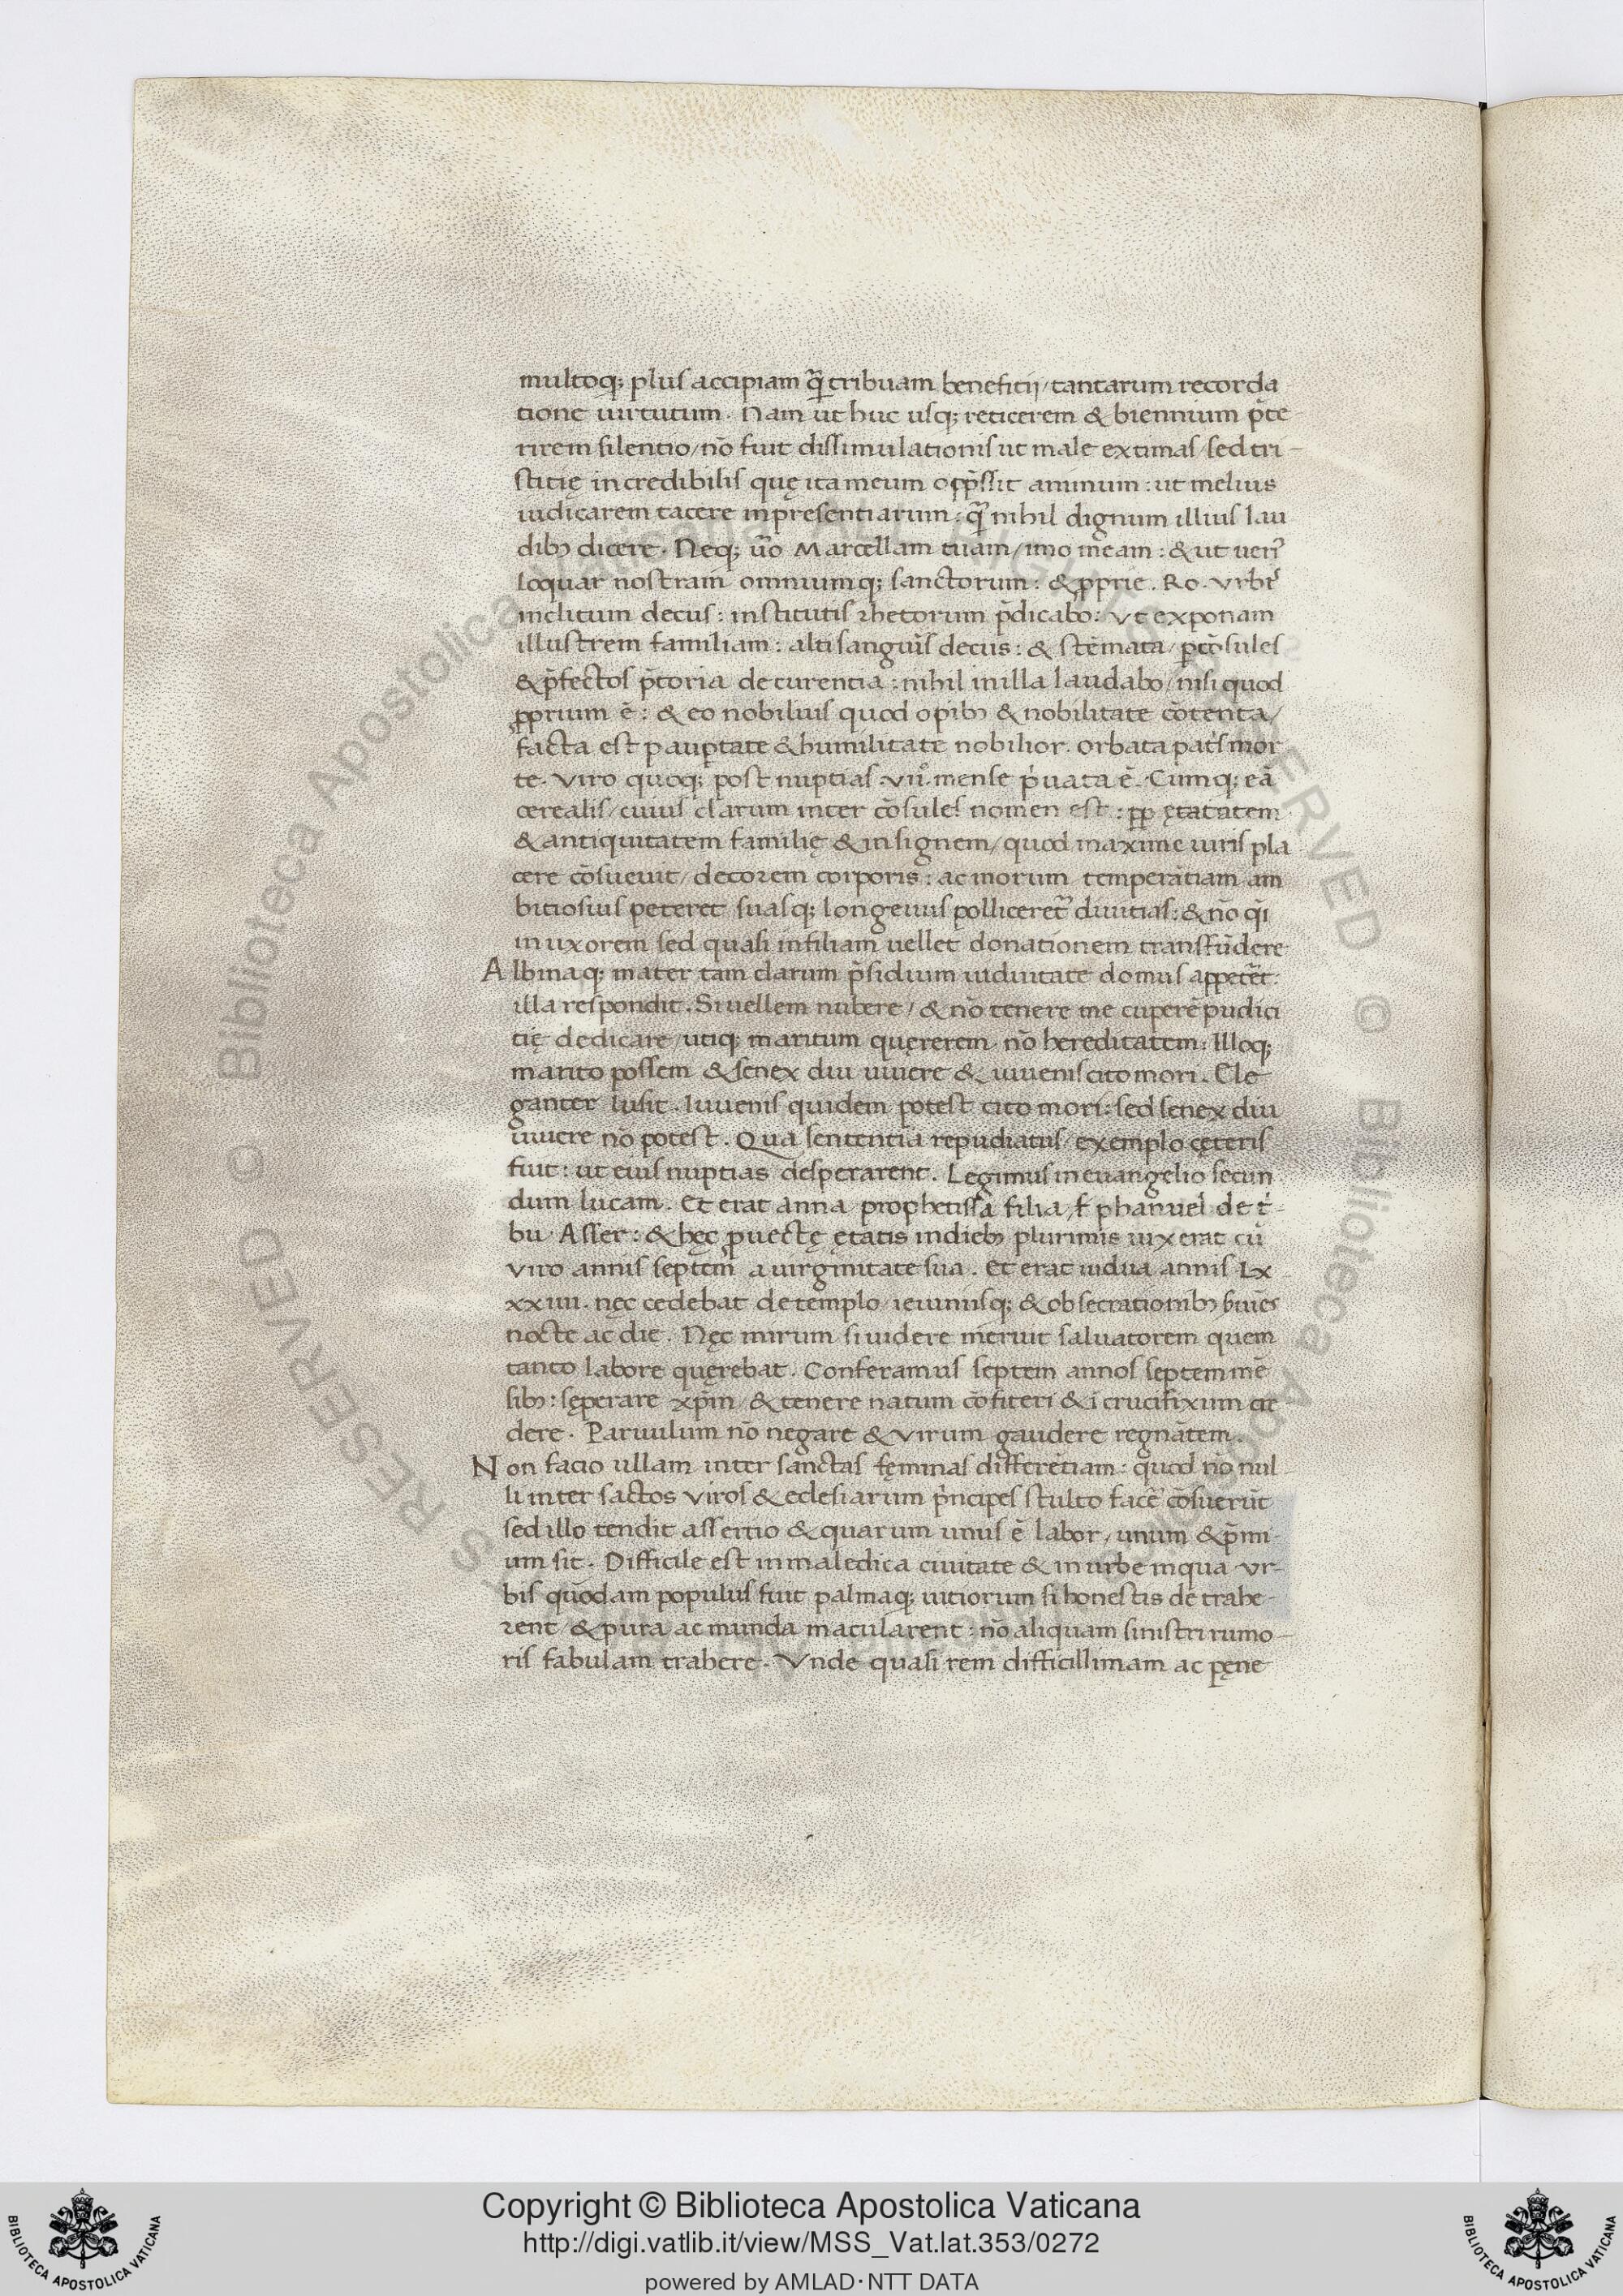 multoq; plus accipiam q̃ tribuam beneficij / tantarum recorda
tione uirtutum. Nam ut huc usq; reticerem & biennium p̃te
rirem silentio / nō fuit dissimulationis ut male extimas / sed tri-
stitię incredibilis quę ita meum opp̃ssit animum: ut melius
iudicarem tacere inpresentiarum: q̃ nihil dignum illius lau
dibꝫ dicere. Neq; ũo Marcellam tuam / imo meam: & ut ueri᷒
loquar nostram omniumq; sanctorum: & ꝓprie. Ro. Vrbi᷒
inclitum decus: institutis rhetorum p̃dicabo: Vt exponam
illustrem familiam: alti sanguis̃ decus: & stēmata / ꝓcōsules
& p̃fectos p̃toria decurentia: nihil in illa laudabo / nisi quod
ꝓprium ē: & eo nobilius quod opibꝫ & nobilitate cōtenta /
facta est paup̱tate & humilitate nobilior. Orbata pat̃s mor
te. Viro quoq; post nuptias .vii.º mense p̃uata ē. Cumq; eā
cerealis / cuius clarum inter cōsules nomen est: ꝓp ętatatem
& antiquitatem familię & insignem / quod maxime uiris pla
cere cōsueuit / decorem corporis: ac morum temperātiam am
bitiosius peteret suasq; longeuus polliceret᷑ diuitias: & nō q̃i
in uxorem sed quasi in filiam uellet donationem transfūdere
Albinaq; mater tam clarum p̃sidium uiduitate domus appetēt:
illa respondit. Si uellem nubere / & nō tenere me cuperē pudici
tię dedicare / utiq; maritum quęrerem nō hereditatem: Illoq;
marito possem & senex diu uiuere & iuuenis cito mori. Ele
ganter lusit. Iuuenis quidem potest cito mori: sed senex diu
uiuere nō potest. Qua sententia repudiatus / exemplo cęteris
fuit: ut eius nuptias desperarent. Legimus in euangelio secun
dum lucam. Et erat anna prophetissa filia / f phanuel de t̃-
bu Asser: & hęc ꝓuectę ętatis in diebꝫ plurimis uixerat cū
viro annis septem a uirginitate sua. Et erat uidua annis Lx
xxiiii. nęc cedebat de templo / ieiuniisq; & obsecrationibꝫ s̃uiēs
nocte ac die. Nęc mirum si uidere meruit saluatorem quem
tanto labore quęrebat. Conferamus septem annos septem mē
sibꝫ: sęperare xp̄m / & tenere natum cōfiteri & ī crucifixum cre
dere. Paruulum nō negare & virum gaudere regnātem.
Non facio ullam inter sanctas fęminas differētiam: quod nō nul
li inter sactos viros & eclesiarum p̃ncipes stulto facē cōsuerūt
sed illo tendit assertio & quarum unus ē labor / unum & p̃mi-
um sit. Difficile est in maledica ciuitate & in urbe in qua vr-
bis quodam populus fuit palmaq; uitiorum si honestis de trahe-
rent / & pura ac munda macularent: nō aliquam sinistri rumo-
ris fabulam trahere. Vnde quasi rem difficillimam ac pęne
© Biblioteca Apostolica Vaticana ALL RIGHTS RESERVED © Biblioteca Apostolica Vaticana ALL RIGHTS RESERVED
Copyright © Biblioteca Apostolica Vaticana
http://digi.vatlib.it/view/MSS_Vat.lat.353/0272
powered by AMLAD·NTT DATA
BIBLIOTECA APOSTOLICA VATICANA
BIBLIOTECA APOSTOLICA VATICANA